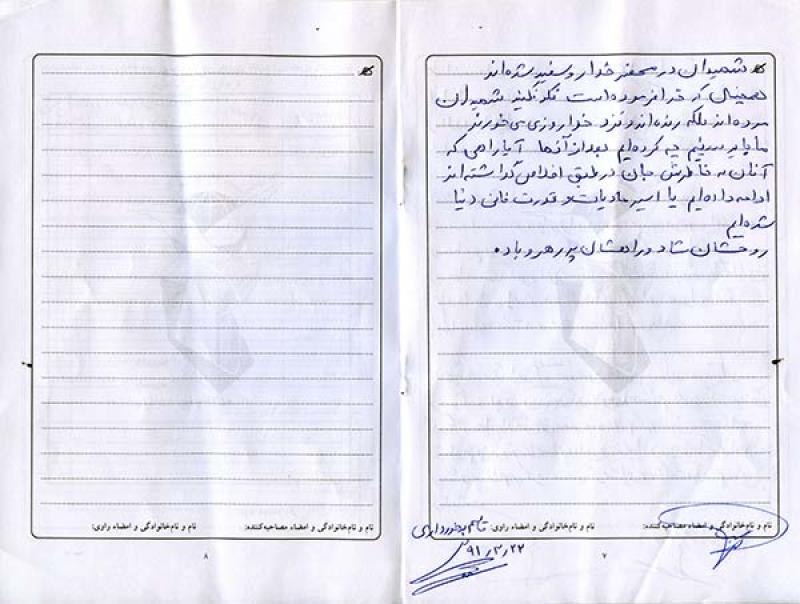 شهیدان در محضر خدا روسفید شده‌اند
همچنان که خدا فرموده است فکر نکنید شهیدان
مرده‌اند بلکه زنده‌اند و نزد خدا روزی می‌خورند
ما باید ببینیم چه کرده‌ایم بعد از آنها آیا راهی که
آنان به خاطرش جان در طبق اخلاص گذاشته‌اند
ادامه داده‌ایم یا اسیر مادیات و قدرت فانی دنیا
شده‌ایم
روحشان شاد و راهشان پر رهرو باد.
نام و نام‌خانوادگی و امضاء مصاحبه‌کننده:
نام و نام‌خانوادگی و امضاء راوی:
۹۱/۳/۲۲
۷
نام و نام‌خانوادگی و امضاء مصاحبه‌کننده:
نام و نام‌خانوادگی و امضاء راوی:
۸